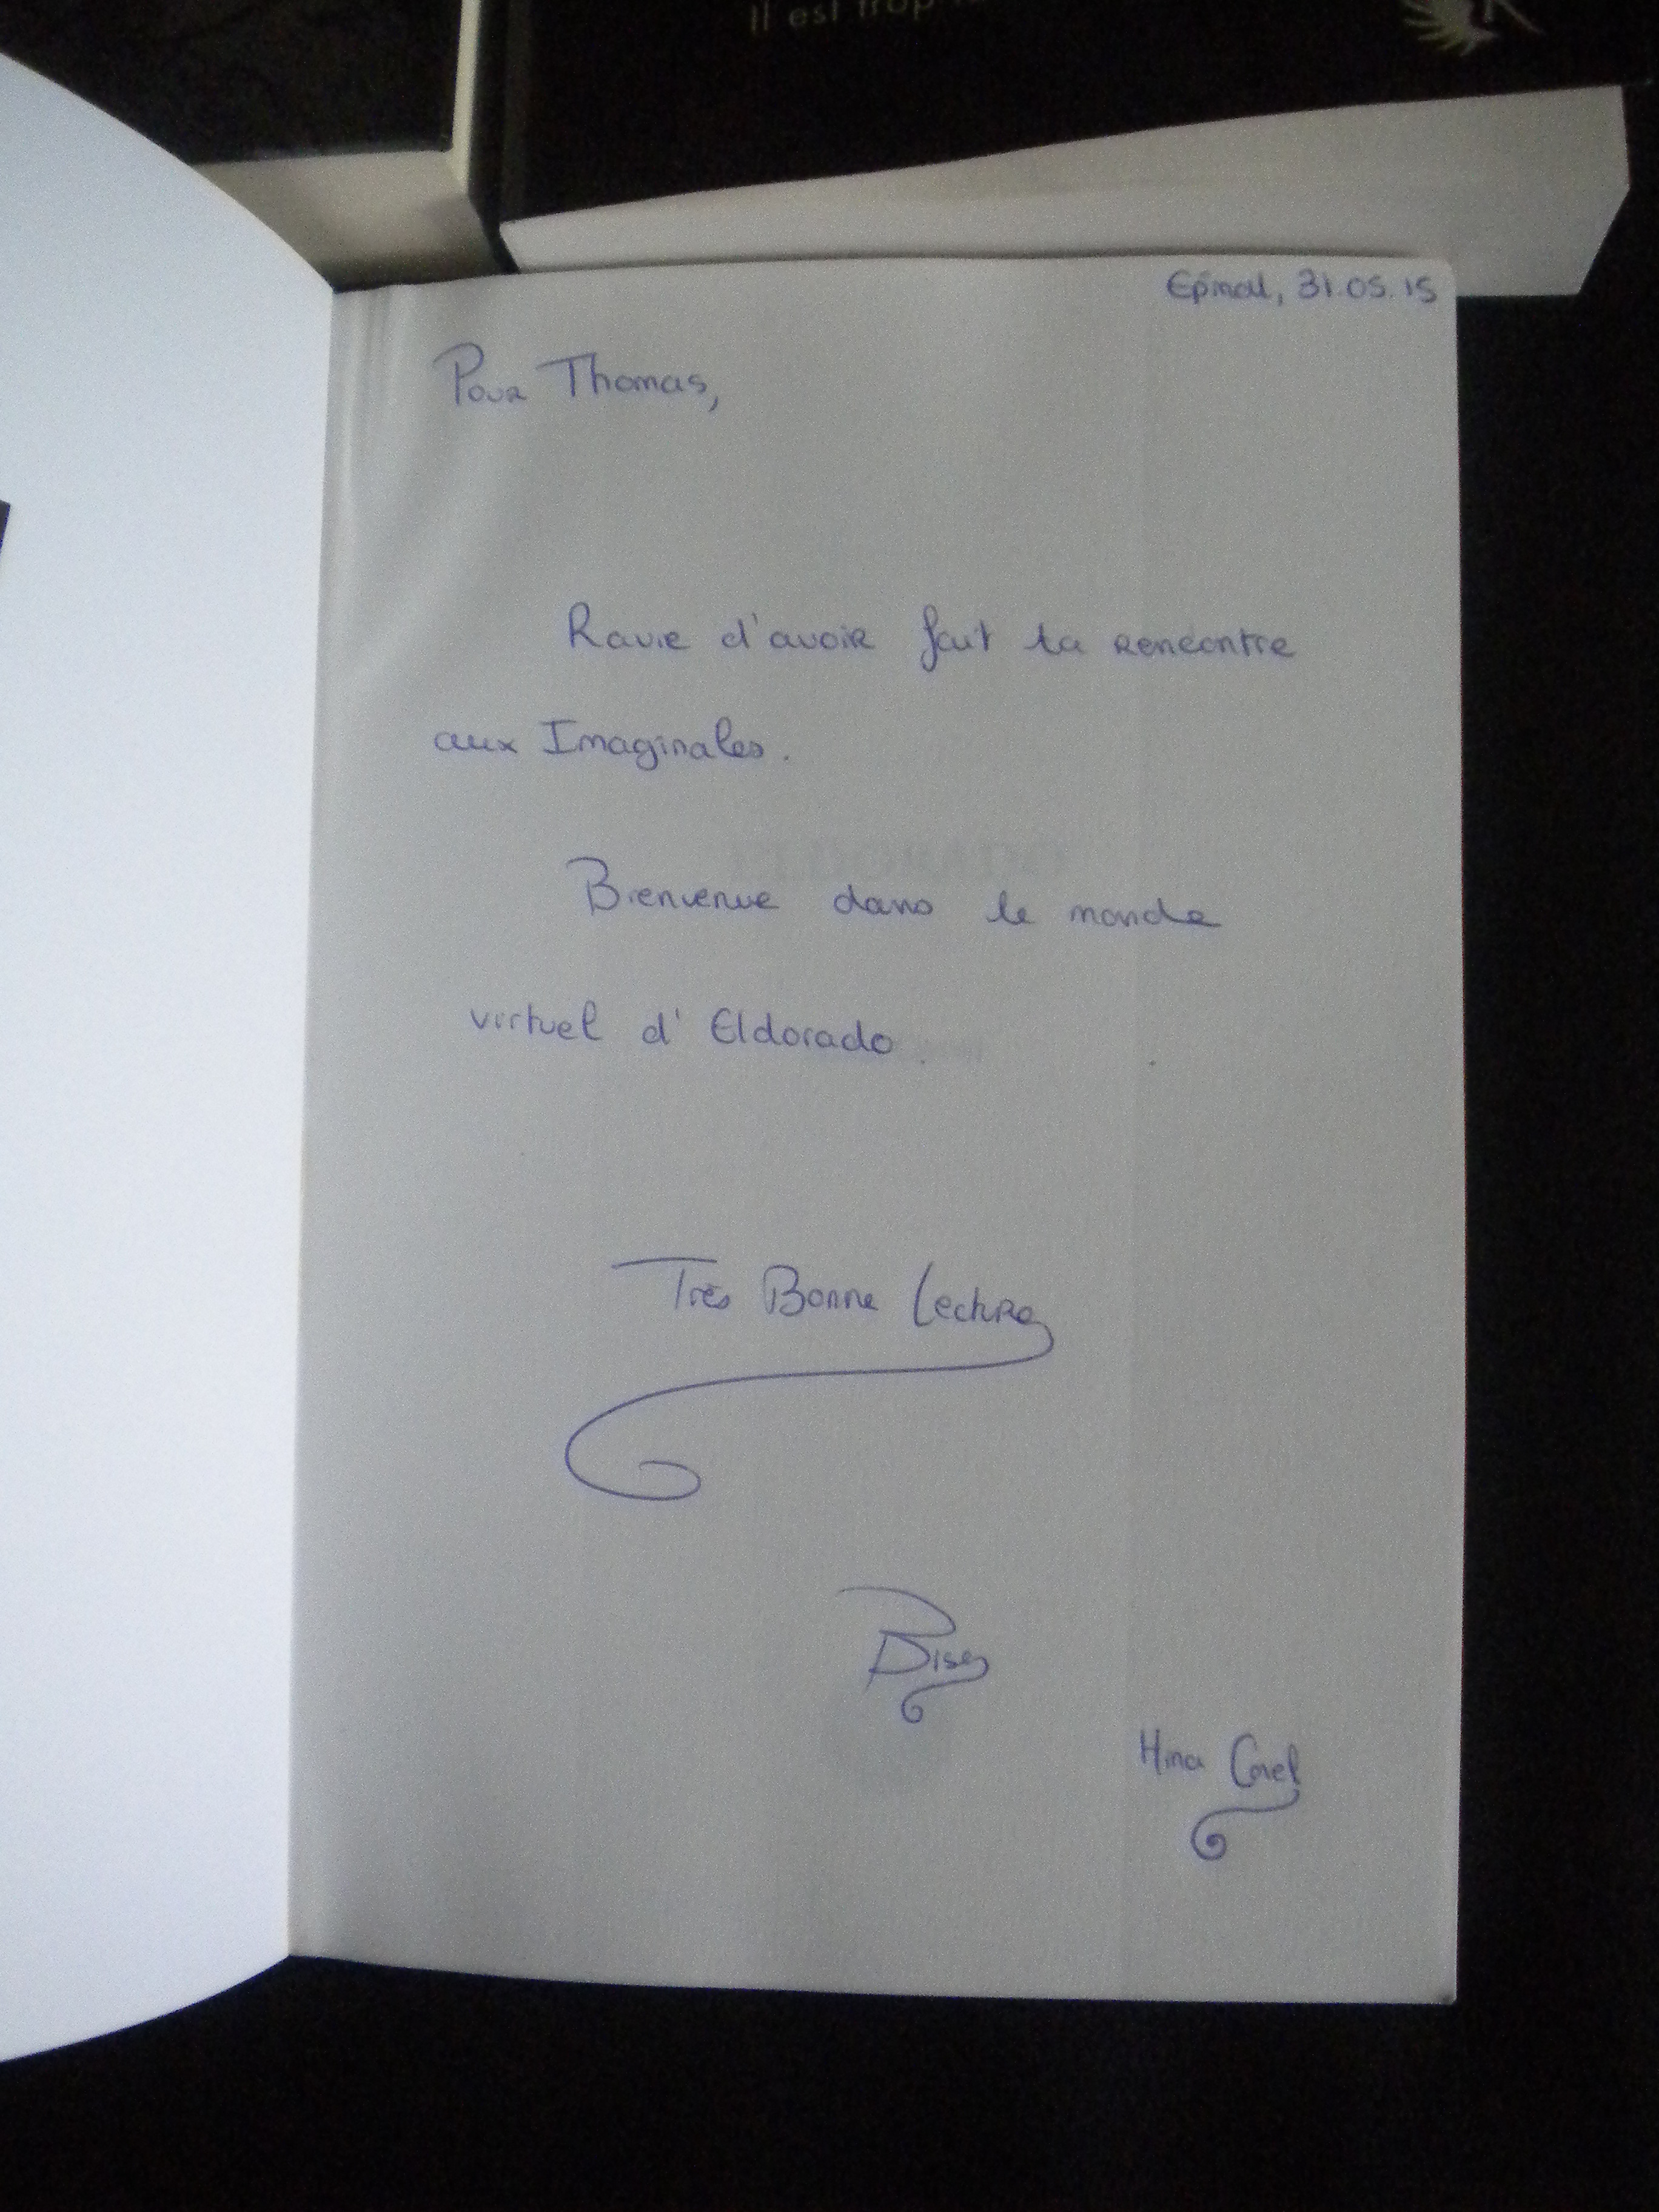 Il est trop
Epinal, 31.05.15
Pour Thomas,
Ravie d'avoir fait ta rencontre
aux Imaginales.
Bienvenue dans le monde
virtuel d'Eldorado.
Très Bonne Lecture
Bises
Hina Corel